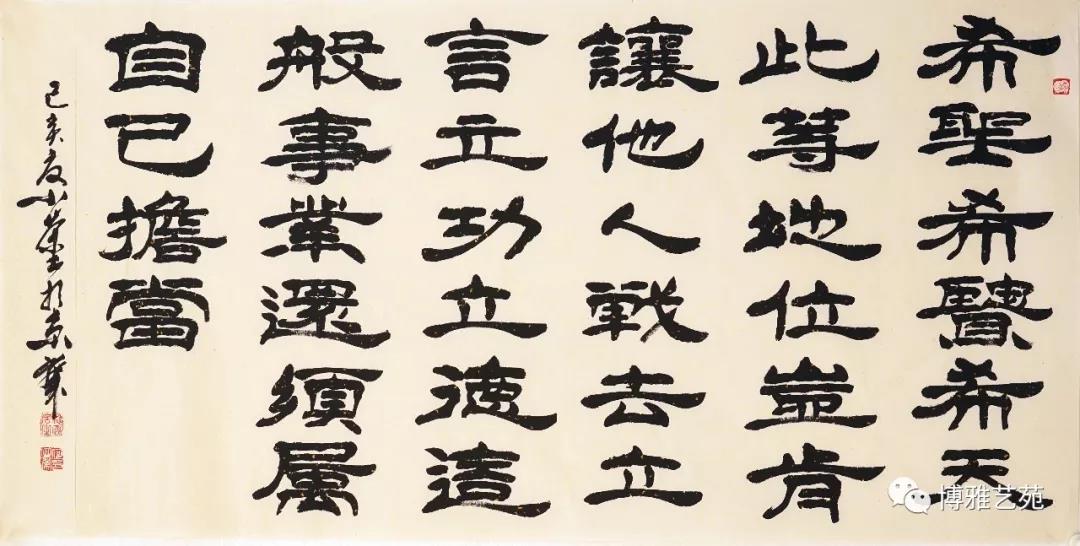 希聖希賢希天
此等地位豈肯
讓他人戰去立
言立功立德這
般事業還須属
自己擔當
己亥夏小
博雅艺苑